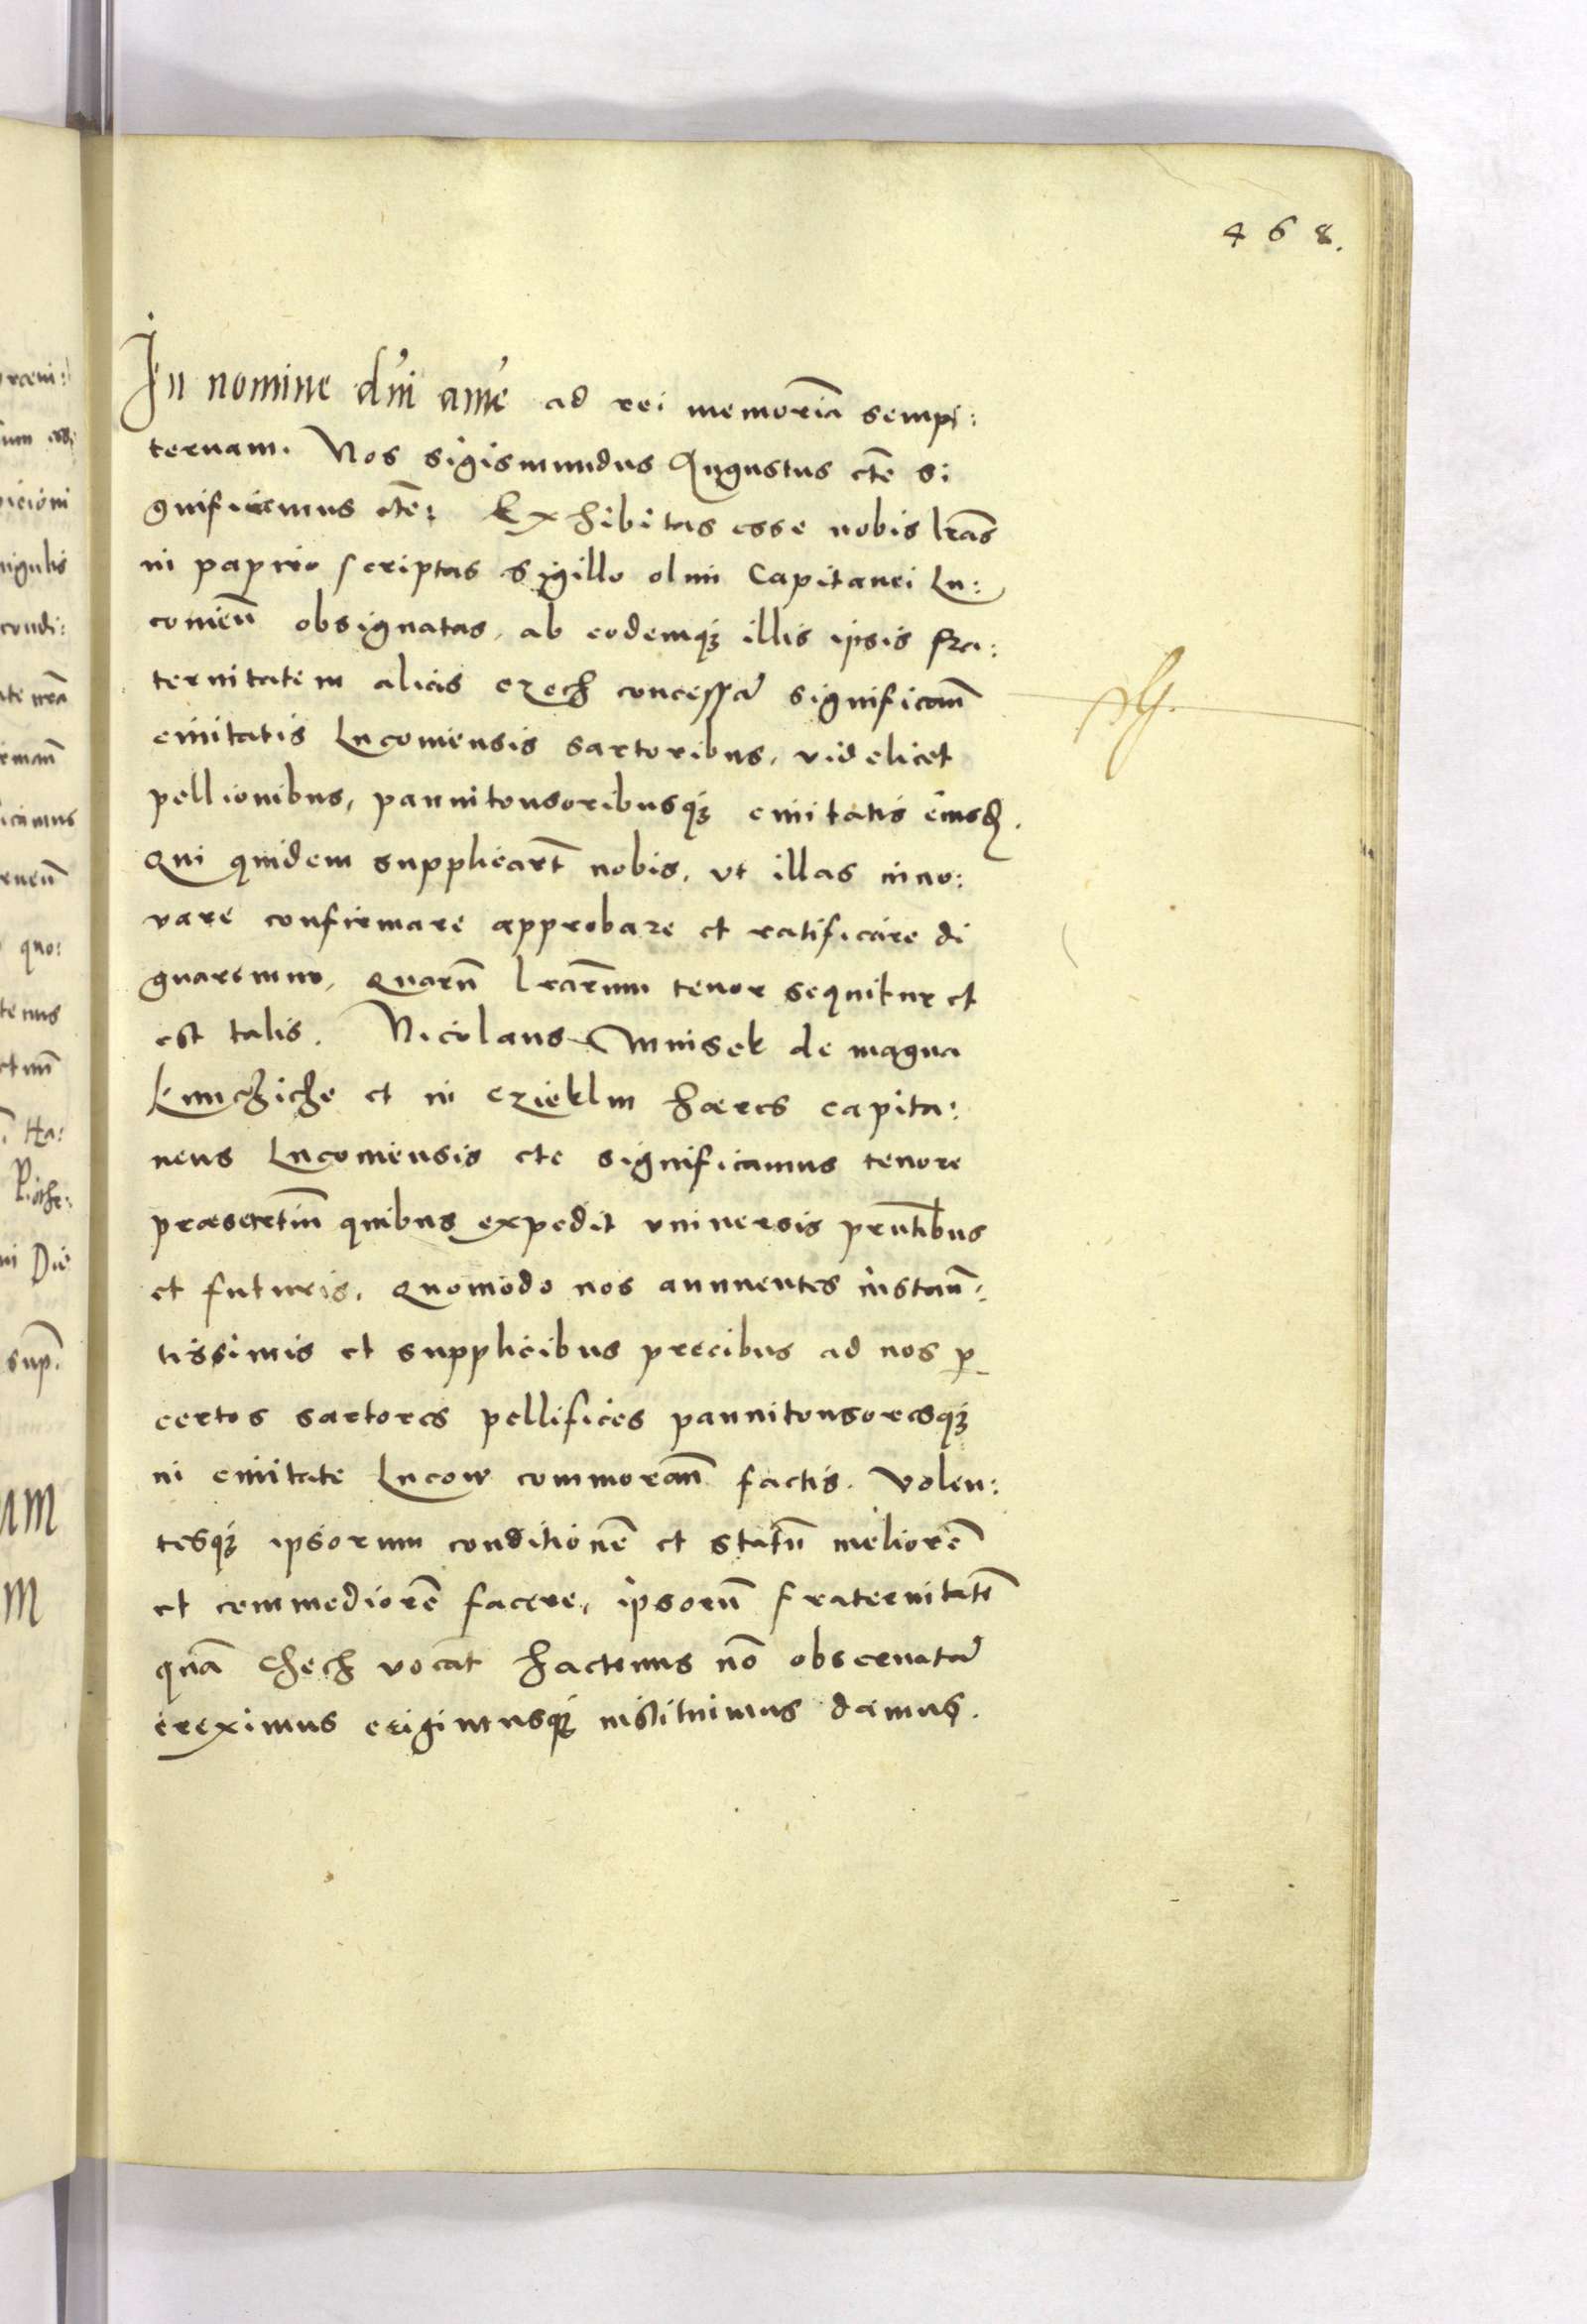 468.
In nomine dñi amē ad rei memoriā sempi:
ternam. Nos sigismundus Augustus etē si
gnificamus etē: Exhibitas esse nobis lrās
in papiro scriptas sigillo olim Capitanei Lu:
comieñ obsignatas, ab eodemq3 illis ipsis fra:
ternitatem alias czech concessā significañ
ciuitatis Lucomensis sartoribus, videlicet
pellionibus, pannitonsoribusq3 ciuitatis eiusd.
Qui quidem supplicarūt nobis, ut illas inno:
vare confirmare approbare et ratificare di
gnaremur, quarū lrarum tenor sequitur et
est talis. Nicolaus Mnisek de magna
kunczicze et in czieklin haeres capita:
neus Lucomiensis etc significamus tenore
praesentiū quibus expedit universis pruntibus
et futuris, Quomodo nos annuentes instañ:
tissimis et supplicibus precibus ad nos p
certos sartores pellifices pannitonsoresq3
in ciuitate Lucow commorañ factis. Volen:
tesq3 ipsorum conditionē et statū meliorē
et commodiorē facere, ipsorū fraternitatē
quā czech vocāt hactenus nō obseruatā
ereximus erigimusq3 instituimus damus.